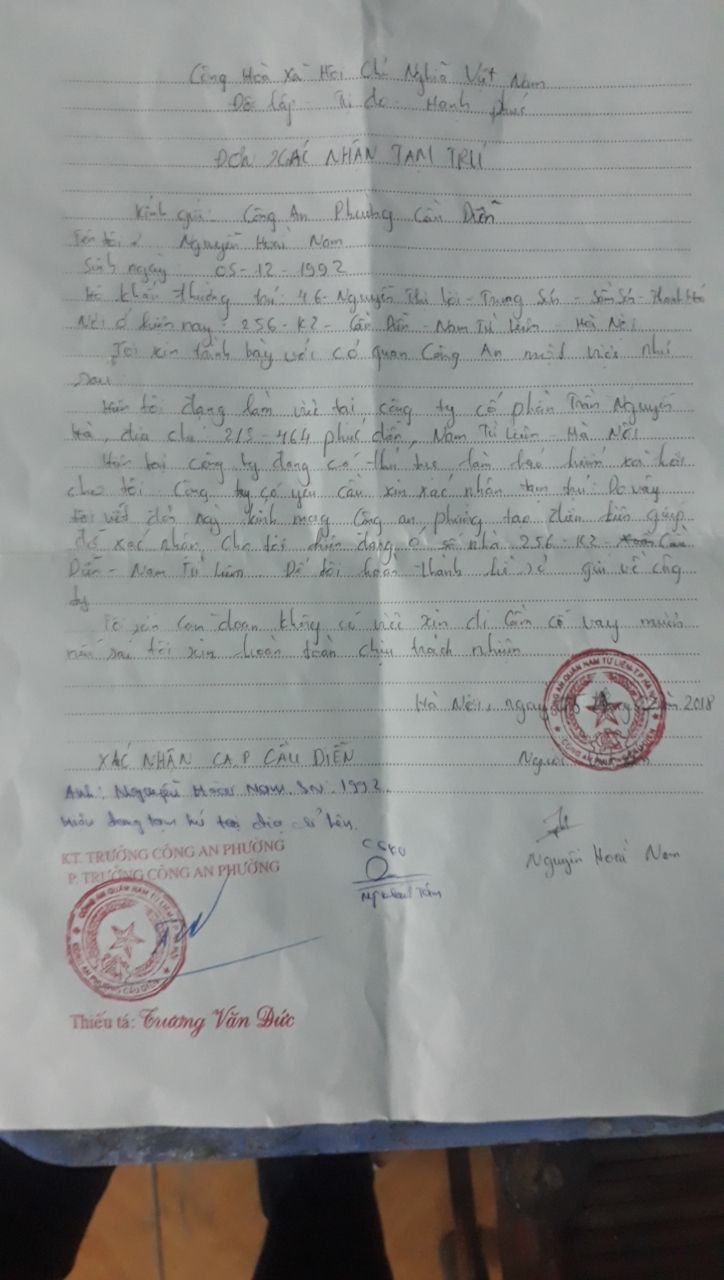 Cộng Hoà Xã Hội Chủ Nghĩa Việt Nam
Độc lập - Tự do - Hạnh phúc
ĐƠN XÁC NHẬN TẠM TRÚ
Kính gửi: Công An Phường Cầu Diễn
Tên tôi là Nguyễn Hoài Nam
Sinh ngày: 05-12-1992
Hộ khẩu thường trú: 46- Nguyễn Thị Lợi - Trung Sơn - Sầm Sơn - Thanh Hoá
Nơi ở hiện nay: 256-K2- Cầu Diễn - Nam Từ Liêm - Hà Nội
Tôi xin trình bày với cơ quan Công An một việc như
sau:
Hiện tôi đang làm việc tại công ty cổ phần Trần Nguyễn
Hà, địa chỉ: 464 phúc diễn, Nam Từ Liêm - Hà Nội
Hiện tại công ty đang có thủ tục làm bảo hiểm xã hội
cho tôi. Công ty có yêu cầu xin xác nhận tạm trú. Do vậy
tôi viết đơn này kính mong Công an phường tạo điều kiện giúp
đỡ xác nhận cho tôi hiện đang ở số nhà 256-K2- Cầu
Diễn - Nam Từ Liêm. Để tôi hoàn thành hồ sơ gửi về công
ty
Tôi xin cam đoan không có việc xin đi cầm cố vay mượn
nếu sai tôi xin hoàn toàn chịu trách nhiệm
Hà Nội, ngày năm 2018
XÁC NHẬN CA.P CẦU DIỄN Người
Anh: Nguyễn Hoài Nam. SN. 1992
Hiện đang tạm trú tại địa chỉ trên.
KT. TRƯỞNG CÔNG AN PHƯỜNG
P. TRƯỞNG CÔNG AN PHƯỜNG
CSKV
Nguyễn Hoài Nam
CÔNG AN QUẬN NAM TỪ LIÊM-TP HÀ NỘI
CÔNG AN PHƯỜNG CẦU DIỄN
Thiếu tá: Trương Văn Đức